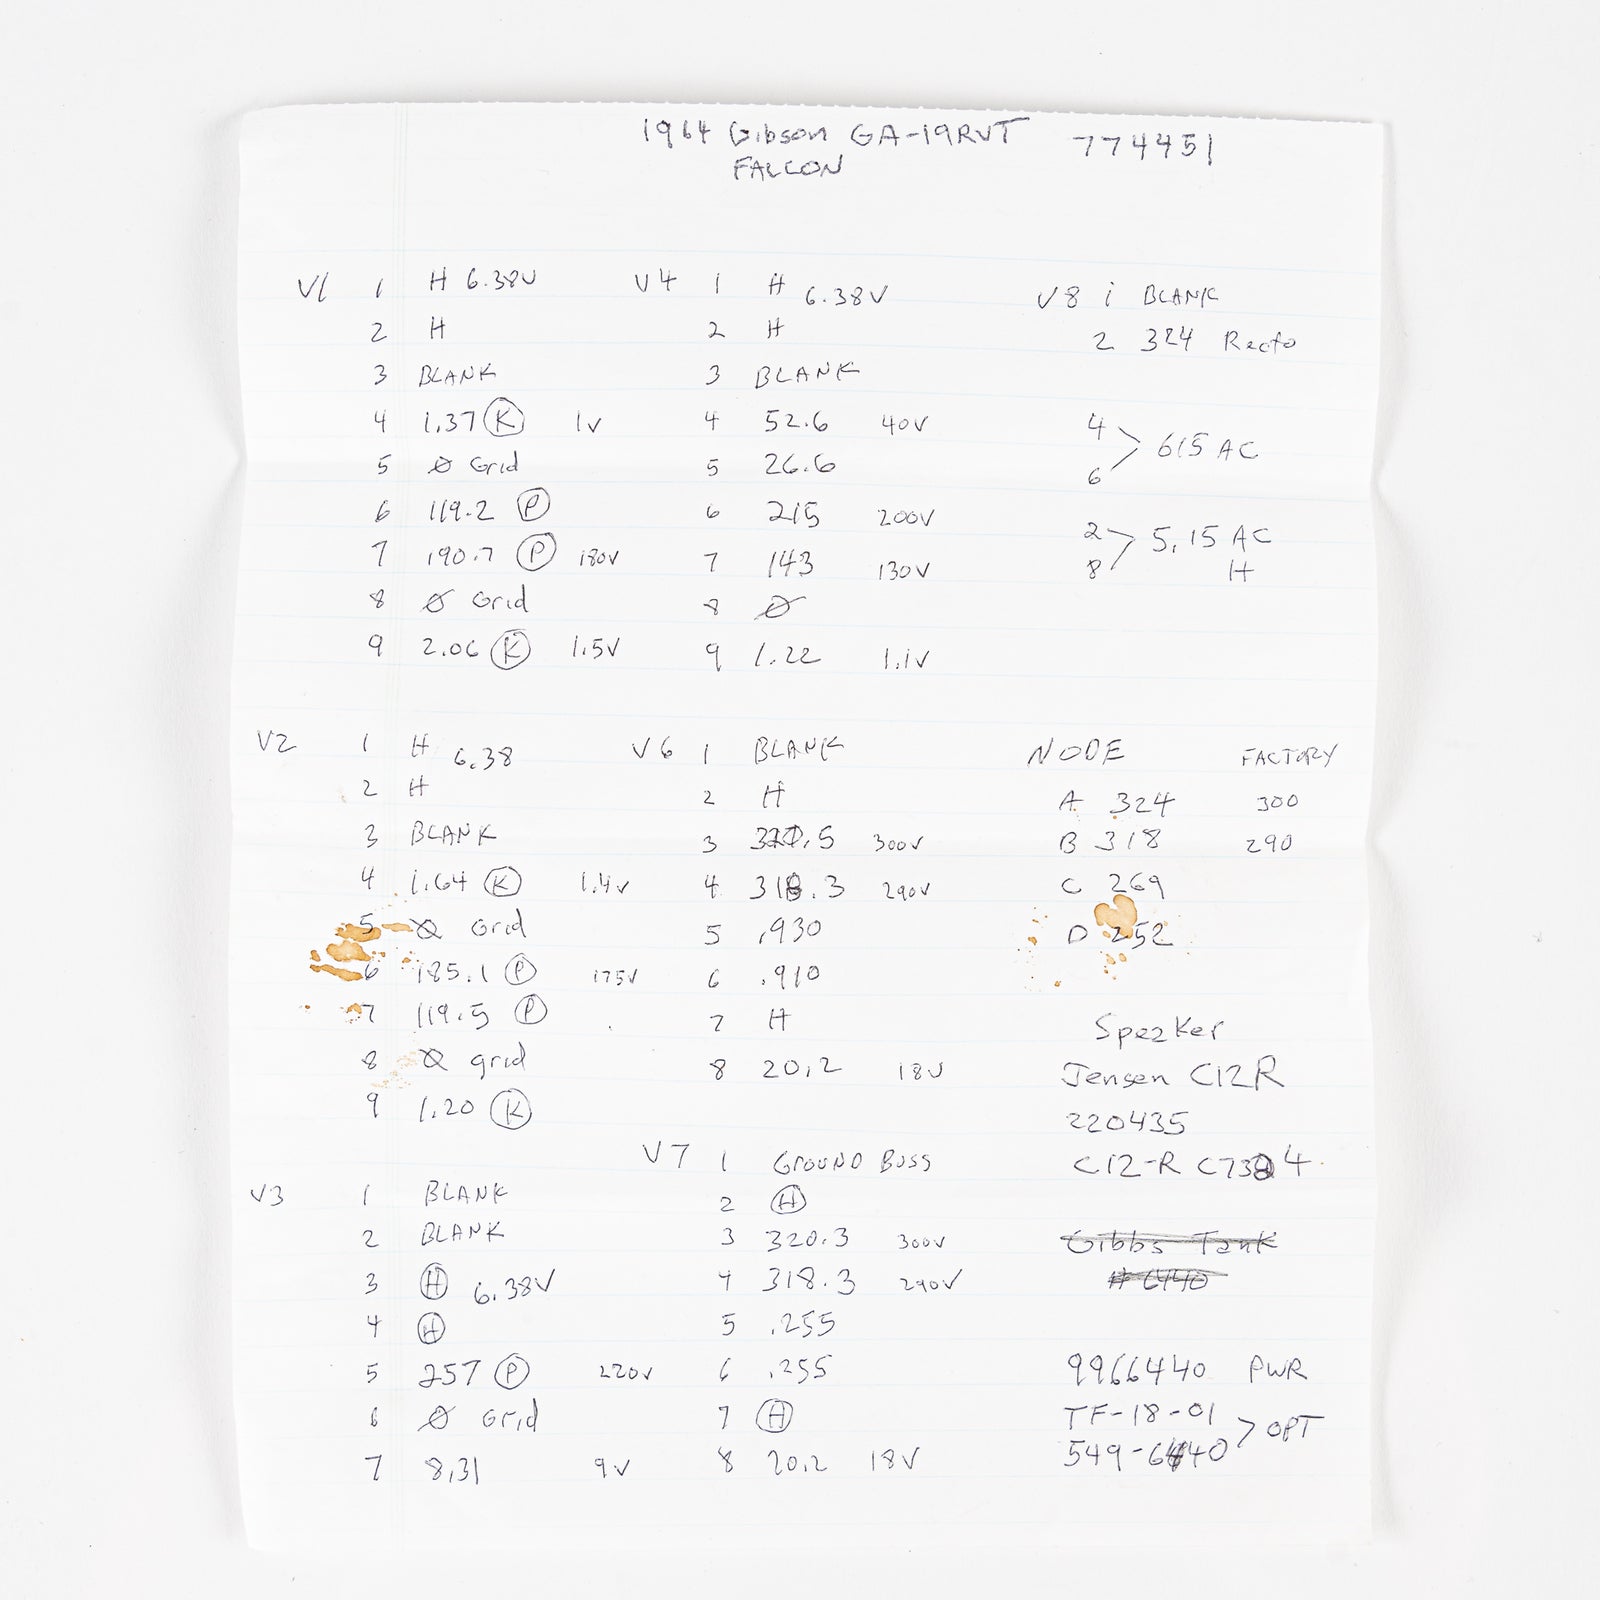 1964 Gibson GA-19RVT 774451
FALCON
V1 1 H 6.38V
2 H
3 BLANK
4 1.37 (K) 1v
5 Ø Grid
6 119.2 (P)
7 190.7 (P) 180v
8 Ø Grid
9 2.06 (K) 1.5V
V2 1 H 6.38
2 H
3 BLANK
4 1.64 (K) 1.4v
5 Ø Grid
6 185.1 (P) 175V
7 119.5 (P)
8 Ø grid
9 1.20 (K)
V3 1 BLANK
2 BLANK
3 (H) 6.38V
4 (H)
5 257 (P) 220v
6 Ø Grid
7 8.31 9v
V4 1 H 6.38V
2 H
3 BLANK
4 52.6 40V
5 26.6
6 215 200V
7 143 130V
8 Ø
9 1.22 1.1V
V6 1 BLANK
2 H
3 320.5 300V
4 318.3 290V
5 .930
6 .910
7 H
8 20.2 18V
V7 1 GROUND BUSS
2 (H)
3 320.3 300V
4 318.3 290V
5 .255
6 .255
7 (H)
8 20.2 18V
V8 1 BLANK
2 324 Recto
4
6 > 615 AC
2
8 > 5.15 AC
H
NODE FACTORY
A 324 300
B 318 290
C 269
D 252
Speaker
Jensen C12R
220435
C12-R C7384
Gibbs Tank
# 6440
9966440 PWR
TF-18-01
549-6440 > OPT